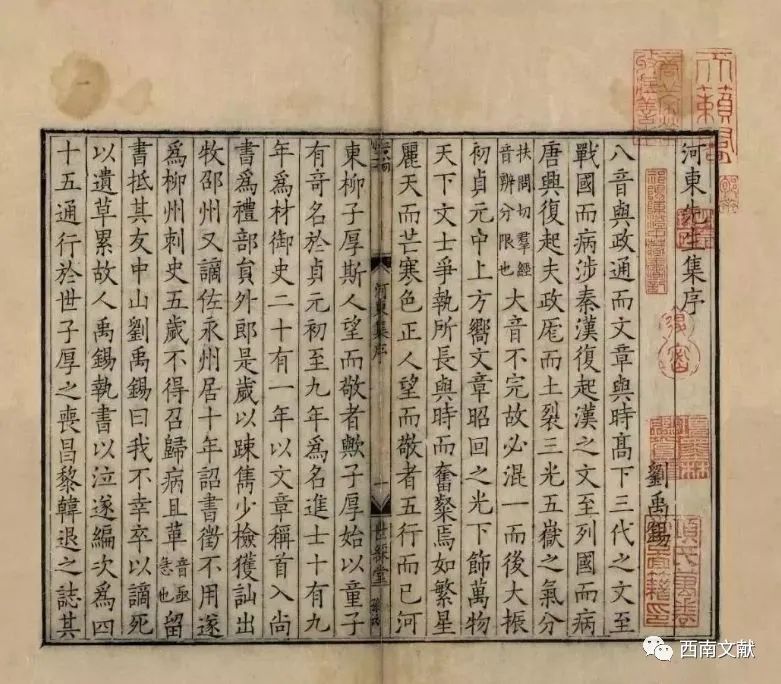 河東先生集序
劉禹錫
八音與政通而文章與時髙下三代之文至
戰國而病涉秦漢復起漢之文至列國而病
唐興復起夫政厖而土裂三光五嶽之氣分
扶問切羣經
音辨分限也
大音不完故必混一而後大振
初貞元中上方嚮文章昭回之光下飾萬物
天下文士爭執所長與時而奮粲焉如繁星
麗天而芒寒色正人望而敬者五行而已河
河東集序
一
世綵堂
東柳子厚斯人望而敬者歟子厚始以童子
有竒名於貞元初至九年爲名進士十有九
年爲材御史二十有一年以文章稱首入尚
書爲禮部貟外郎是歲以踈雋少檢獲訕出
牧邵州又謫佐永州居十年詔書徵不用遂
爲柳州刺史五歲不得召歸病且革
音亟
急也
留
書抵其友中山劉禹錫曰我不幸卒以謫死
以遺草累故人禹錫執書以泣遂編次爲四
十五通行於世子厚之喪昌黎韓退之誌其
天籟閣
西南文献